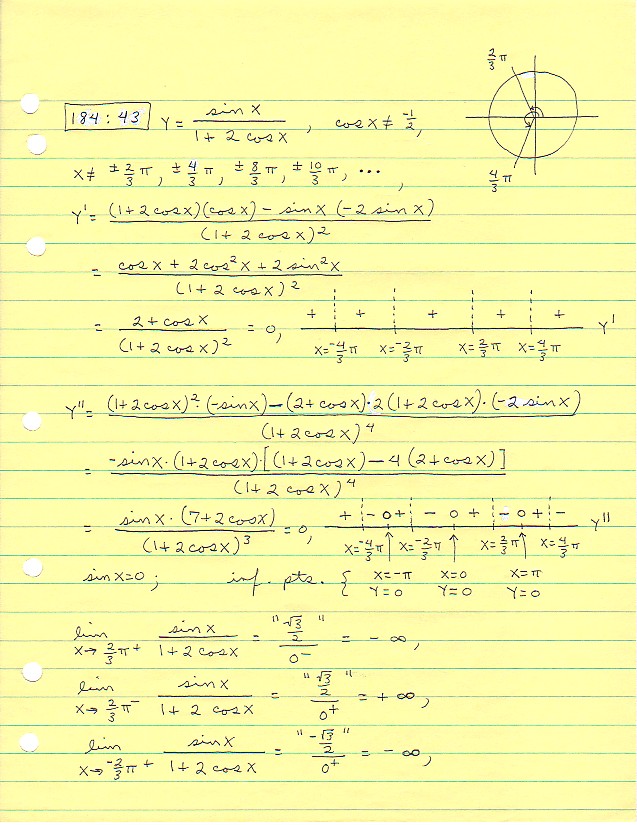 184 : 43 Y = sin X / (1 + 2 cos X) , cos X ≠ -1/2 ,
2/3 π
4/3 π
X ≠ ± 2/3 π , ± 4/3 π , ± 8/3 π , ± 10/3 π , ... ,
Y' = ((1+2cosx)(cosx) - sinx (-2 sinx)) / (1+2cosx)^2
= (cosx + 2cos^2 x + 2 sin^2 x) / (1+2cosx)^2
= (2+cosx) / (1+2cosx)^2 = 0,
+ + + + + Y'
X=-4/3 π X=-2/3 π X=2/3 π X=4/3 π
Y'' = ((1+2cosx)^2 · (-sinx) - (2+cosx) · 2(1+2cosx) · (-2 sinx)) / (1+2cosx)^4
= (-sinx · (1+2cosx) · [(1+2cosx) - 4 (2+cosx)]) / (1+2cosx)^4
= (sinx · (7+2cosx)) / (1+2cosx)^3 = 0,
+ - 0 + - 0 + - 0 + - Y''
X=-4/3 π X=-2/3 π X=2/3 π X=4/3 π
sinx=0 ; inf. pts. { X=-π X=0 X=π
Y=0 Y=0 Y=0
lim X→ 2/3 π+ sinx / (1+2cosx) = "√3/2" / 0- = -∞,
lim X→ 2/3 π- sinx / (1+2cosx) = "√3/2" / 0+ = +∞,
lim X→ -2/3 π+ sinx / (1+2cosx) = "-√3/2" / 0+ = -∞,